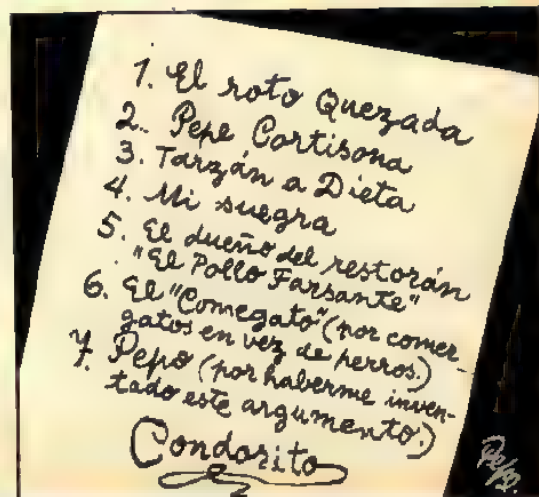 1. El roto Quezada
2. Pepe Cortisona
3. Tarzán a Dieta
4. Mi suegra
5. El dueño del restorán
"El Pollo Farsante"
6. El "Comegato" (por comer-
gatos en vez de perros.)
7. Pepo (por haberme inven-
tado este argumento.)
Condorito
Pepo.